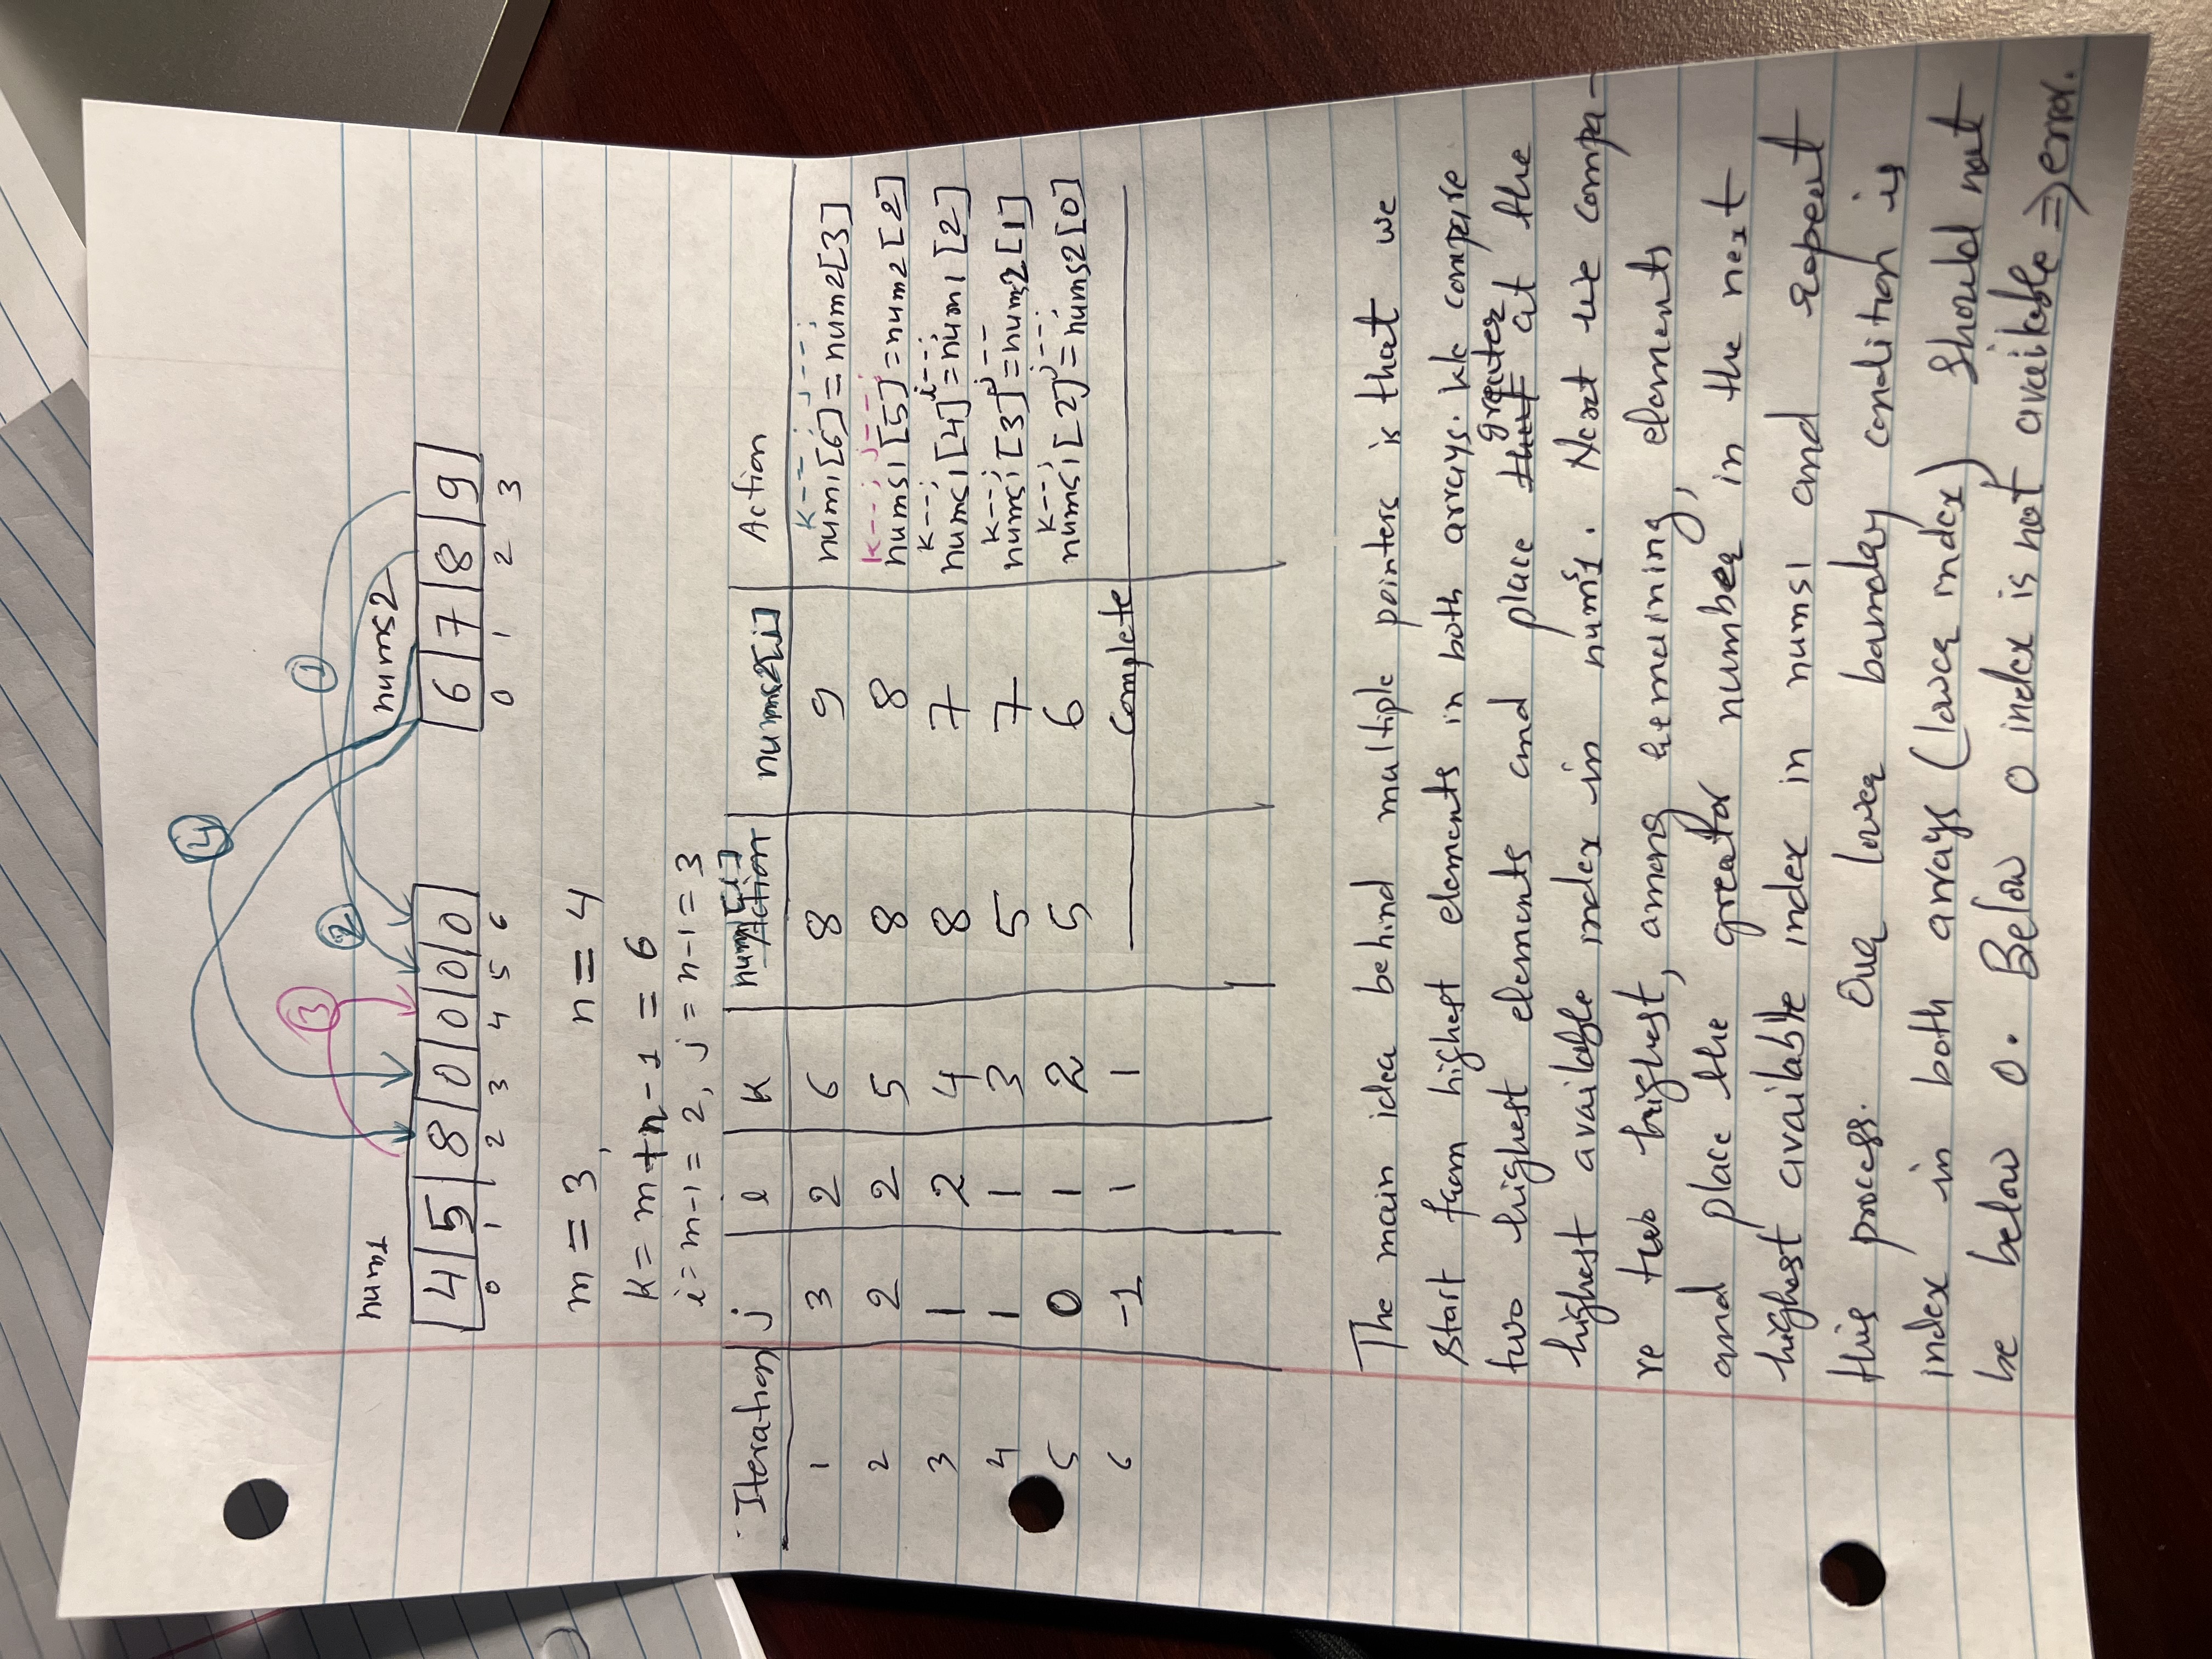 4
3
1
2
nums1
nums2
4 5 8 0 0 0 0
6 7 8 9
0 1 2 3 4 5 6
0 1 2 3
m = 3, n = 4
K = m+n-1 = 6
i = m-1 = 2, j = n-1 = 3
Iteration j i K nums1[i] Action nums2[j] Action
k--; j--;
1 3 2 6 8 9 num1[6]=num2[3]
k--; j--;
2 2 2 5 8 8 nums1[5]=num2[2]
k--; i--;
3 1 2 4 8 7 nums1[4]=num1[2]
k--; j--
4 1 1 3 5 7 nums1[3]=nums2[1]
k--; j--;
5 0 1 2 5 6 nums1[2]=nums2[0]
6 -1 1 1 Complete
The main idea behind multiple pointers is that we
start from highest elements in both arrays. We compare
two highest elements and place that greater at the
highest available index in nums1. Next we compa-
re two highest, among remaining, elements
and place the greator number in the next
highest available index in nums1 and repeat
this process. Our lower bounday condition is
index in both arrays (lower index) should not
be below 0. Below 0 index is not available ⇒ error.